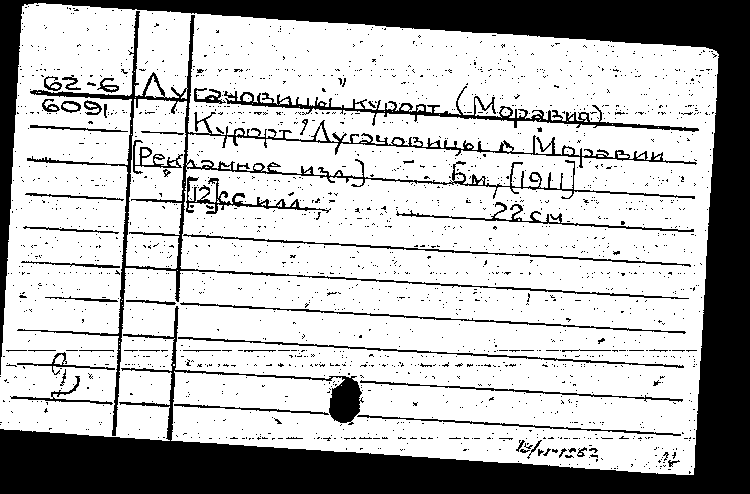 62-6 Лугачовицы", курорт. (Моравия)
6091
Курорт "Лугачовицы в Моравии
[Рекламное изд.] Б.м., [1911]
[12] сс илл. 22 см.